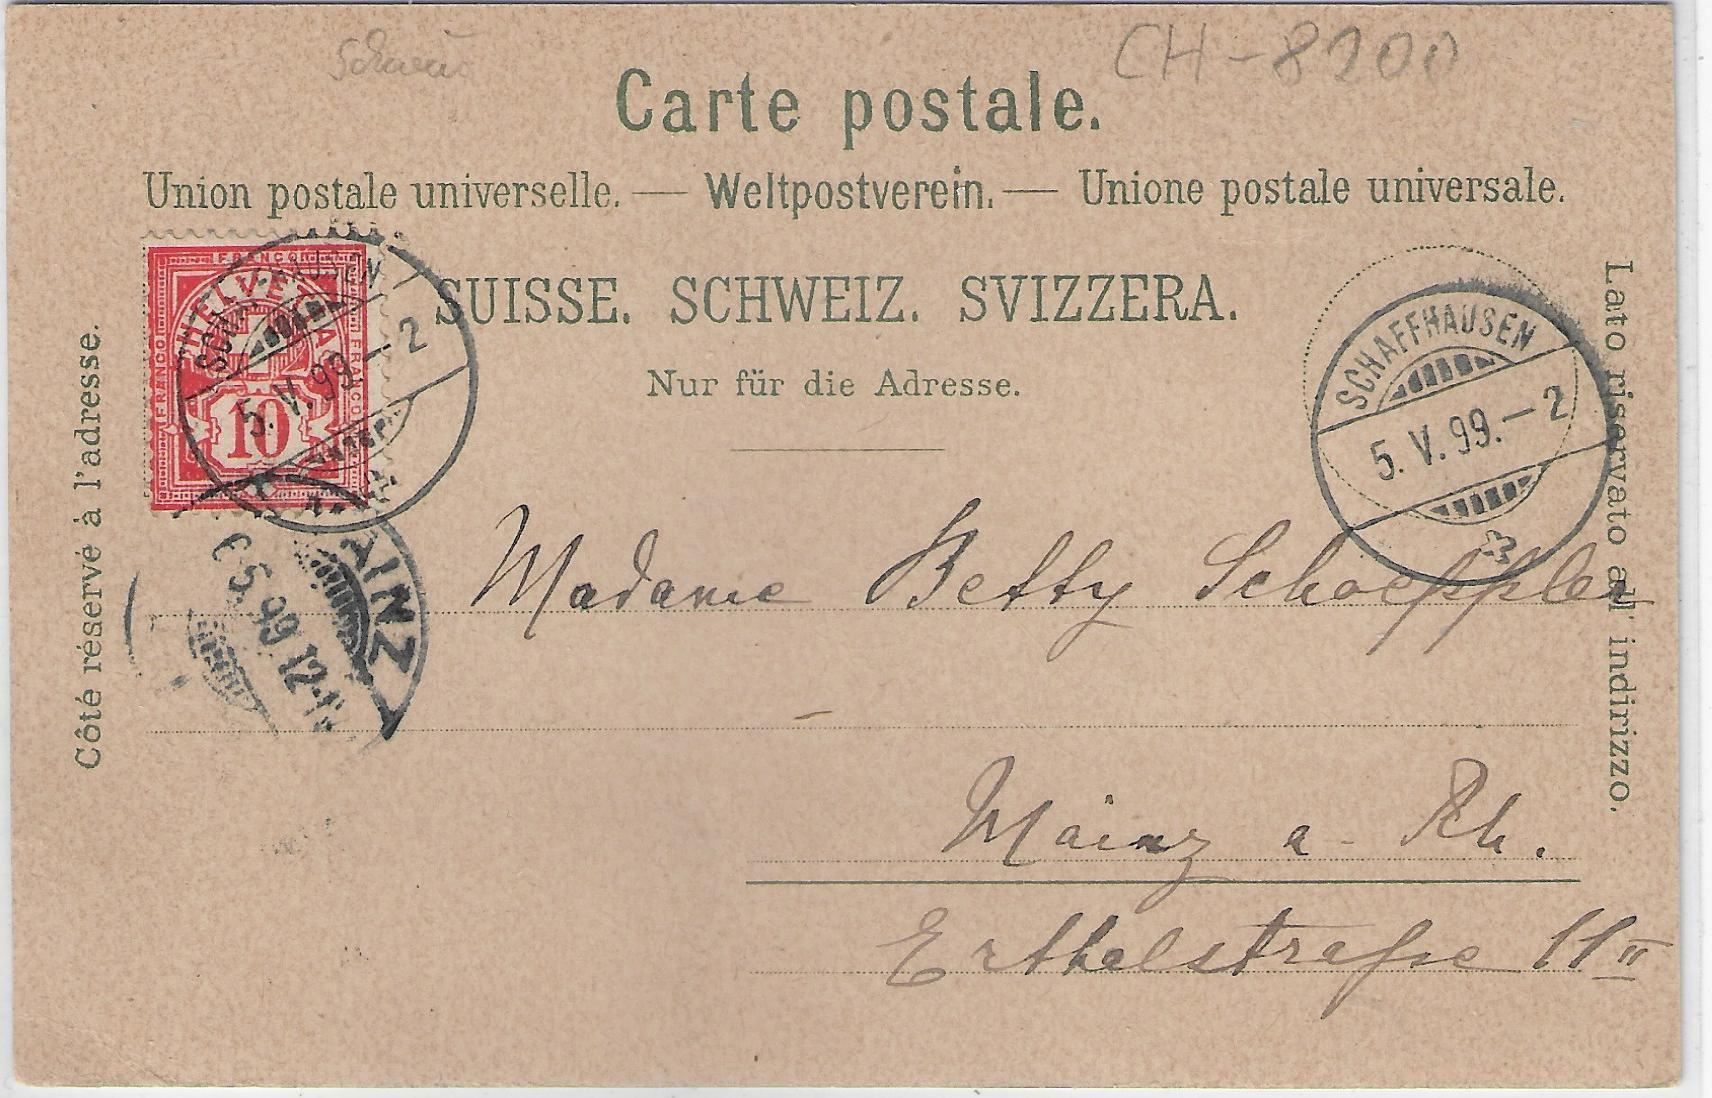 CH-8200
Carte postale.
Union postale universelle. — Weltpostverein. — Unione postale universale.
SUISSE. SCHWEIZ. SVIZZERA.
Nur für die Adresse.
Côté réservé à l'adresse.
Lato riservato all' indirizzo.
FRANCO
HELVETIA
FRANCO
FRANCO
10
5. V. 99. – 2
SCHAFFHAUSEN
5. V. 99. – 2
MAINZ
5. 99 12-1
Madame Betty Schoeppler
Mainz a. Rh.
Erthalstraße 11 II